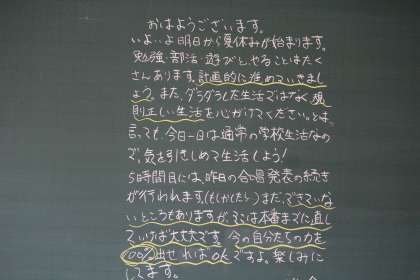 おはようございます。
いよいよ明日から夏休みが始まります。
勉強・部活・遊びと、やることはたく
さんあります。計画的に進めていきまし
ょう。また、ダラダラした生活ではなく、規
則正しい生活を心がけてください。とは
言っても、今日一日は通常の学校生活なの
で、気を引きしめて生活しよう!
5時間目には、昨日の合唱発表の続き
が行われます。(もしかしたら)まだ、できていな
いところもありますが、そこは本番までに直し
ていけば大丈夫です。今の自分たちの力を
100%出せればokですよ。楽しみに
してます。